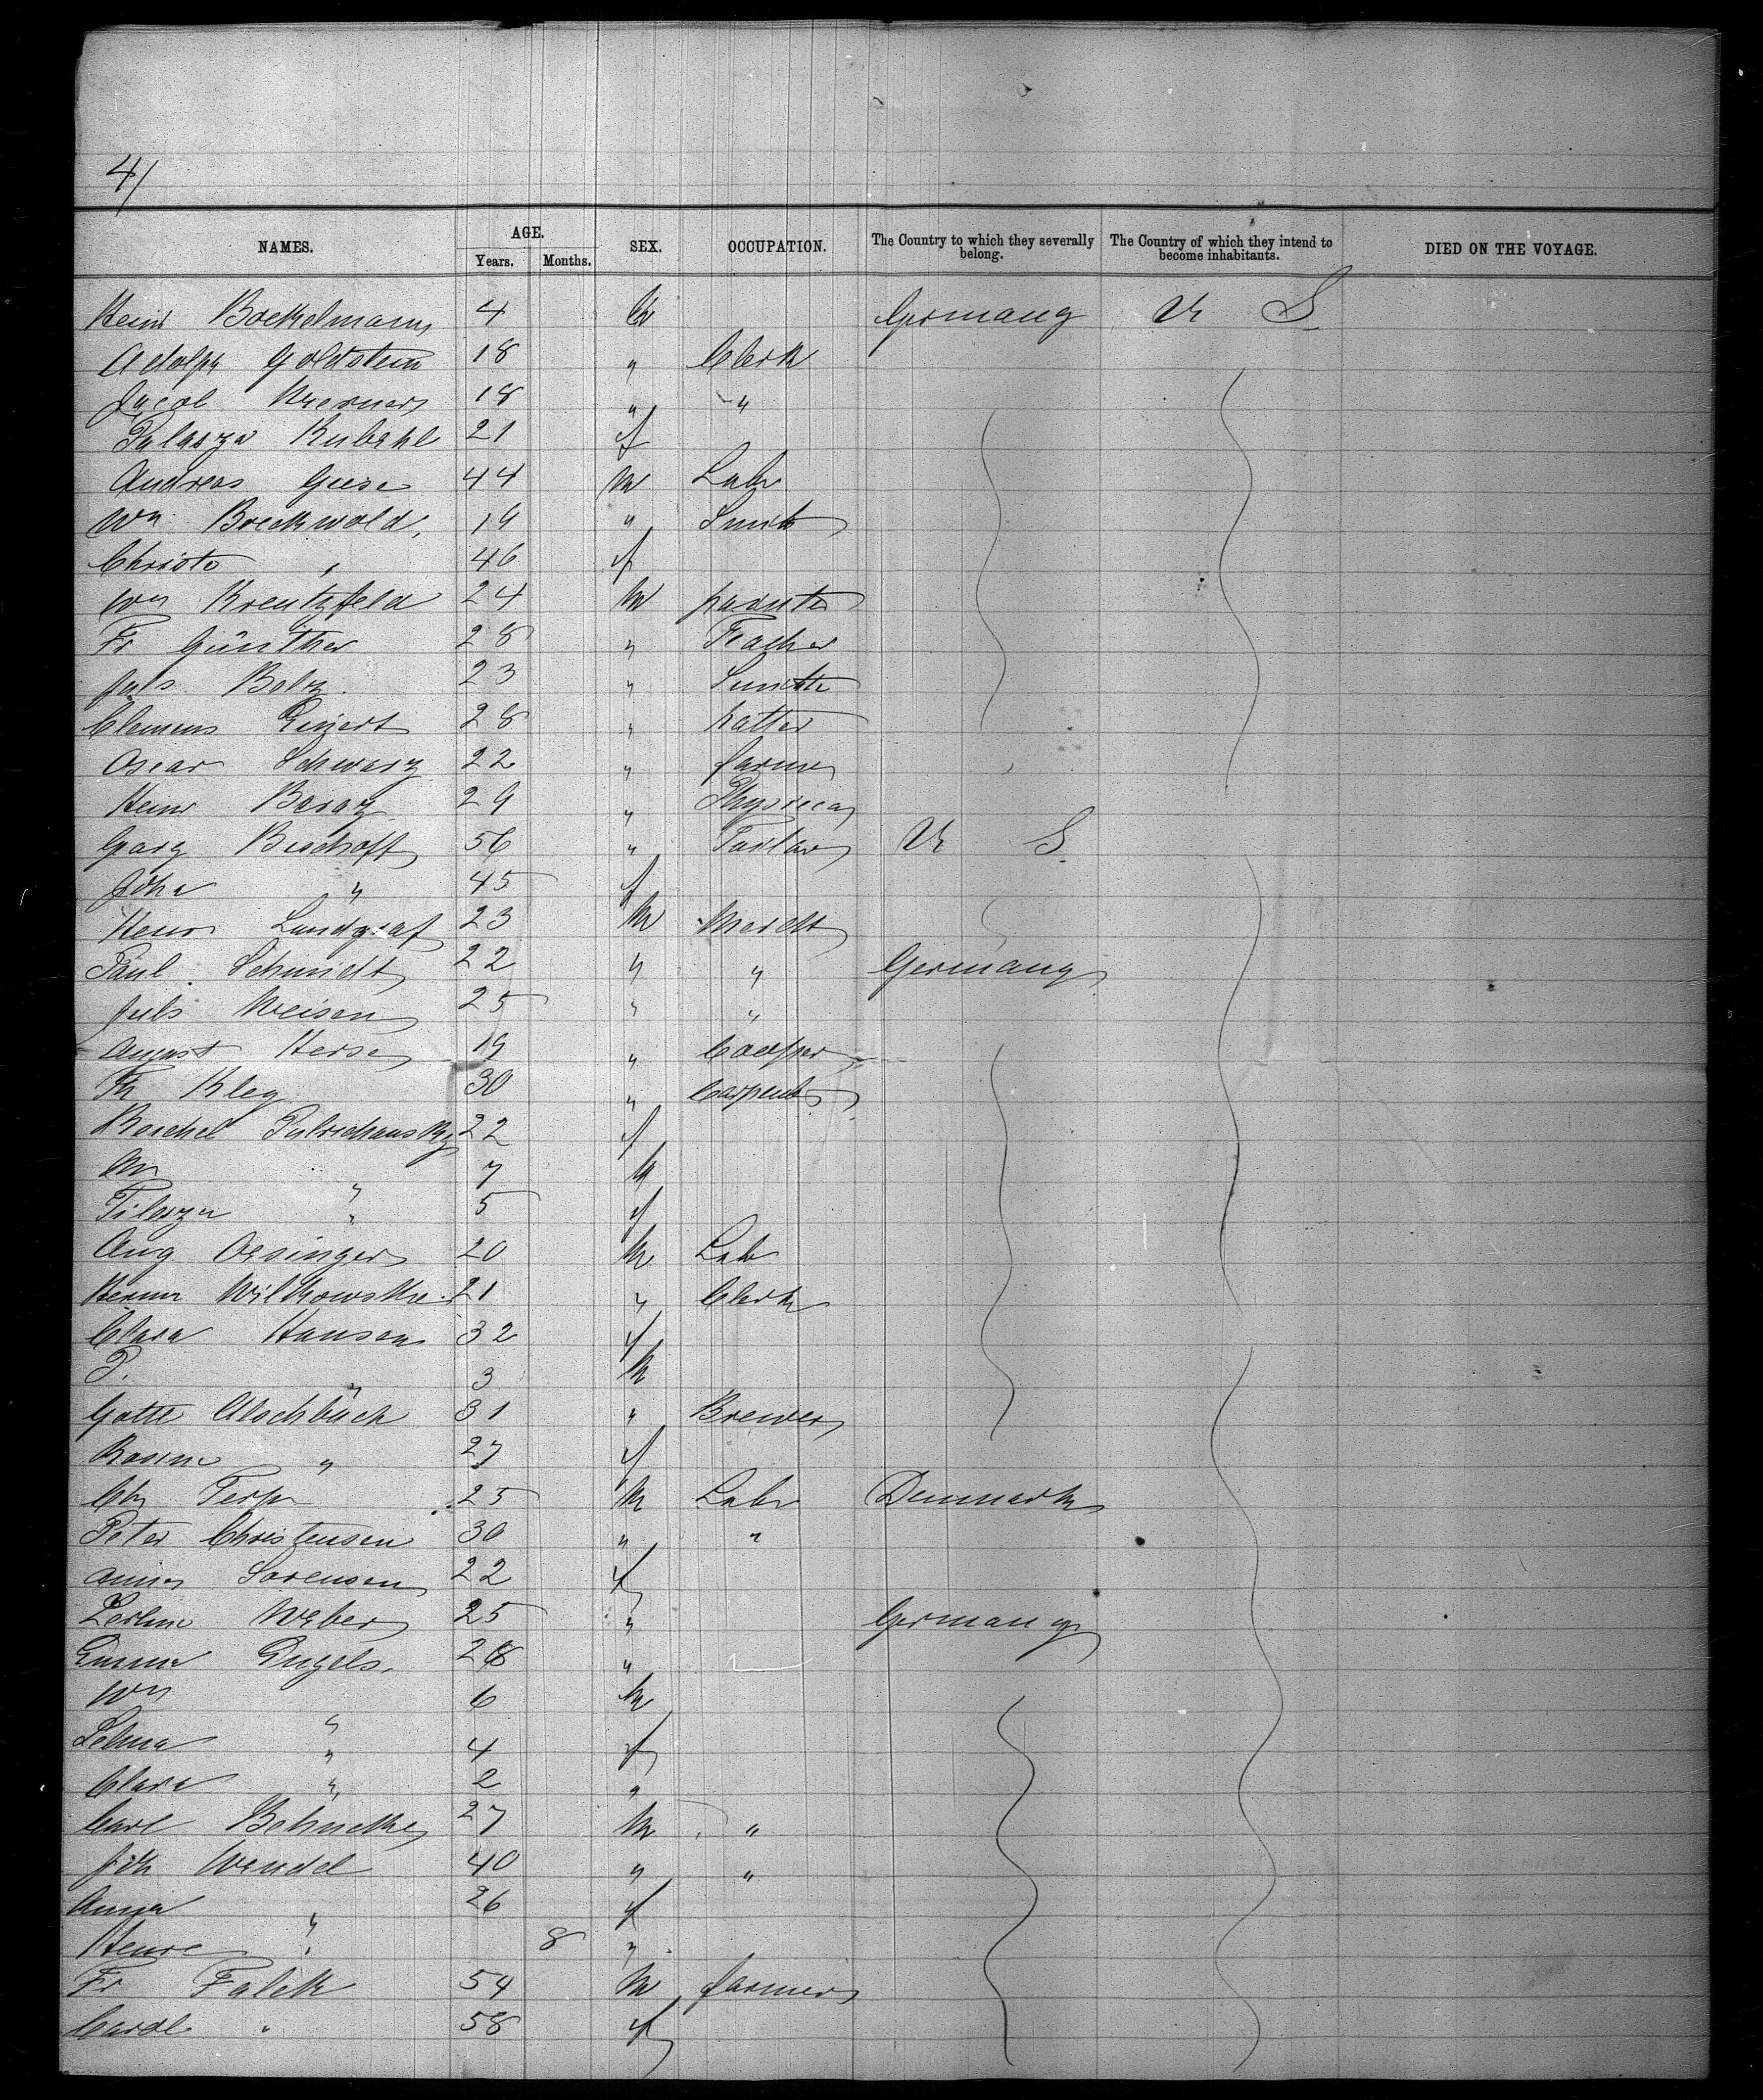 4/
NAMES. AGE. Years. Months. SEX. OCCUPATION. The Country to which they severally belong. The Country of which they intend to become inhabitants. DIED ON THE VOYAGE.
Heinr Boekelmann 4 M Germany U S
Adolph Goldstein 18 " Clerk
Jacob 18 " "
Kubahl 21 f
Andreas Giese 44 M Labr
Wm Breckwold 19 " Smith
Christe " 46 f
Wm Kreutzfeld 24 M painter
Fr Günther 28 " Teacher
Juls Bolz 23 " Smith
Clemens 28 " hatter
Oscar Schwarz 22 " farmer
Heinr 29 " Physician
Georg Bischoff 56 " Tailor U S
Joha " 45 f
Heinr Landgraf 23 M Mercht
Paul Schmidt 22 " " Germany
Juls Meisen 25 " "
August Herse 19 " Cooper
Th Kley 30 " Carpent
22 f
" 7 M
" 5 f
Aug Oesinger 20 M Labr
Herm Wilkowske 21 " Clerk
Clara Hansen 32 f
P. " 3 M
Gottl Aschbach 31 " Brewer
Rosine " 27 f
Chr Terp 25 M Labr Denmark
Peter Christensen 30 " "
Anna Sorensen 22 f
Weber 25 " Germany
Emma Engels 28 "
Wm " 6 M
Selma " 4 f
Clara " 2 "
Carl Behncke 27 M "
Joh Wendel 40 " "
Anna " 26 f
" 8 "
Fr Falck 54 M farmer
Carol " 58 f